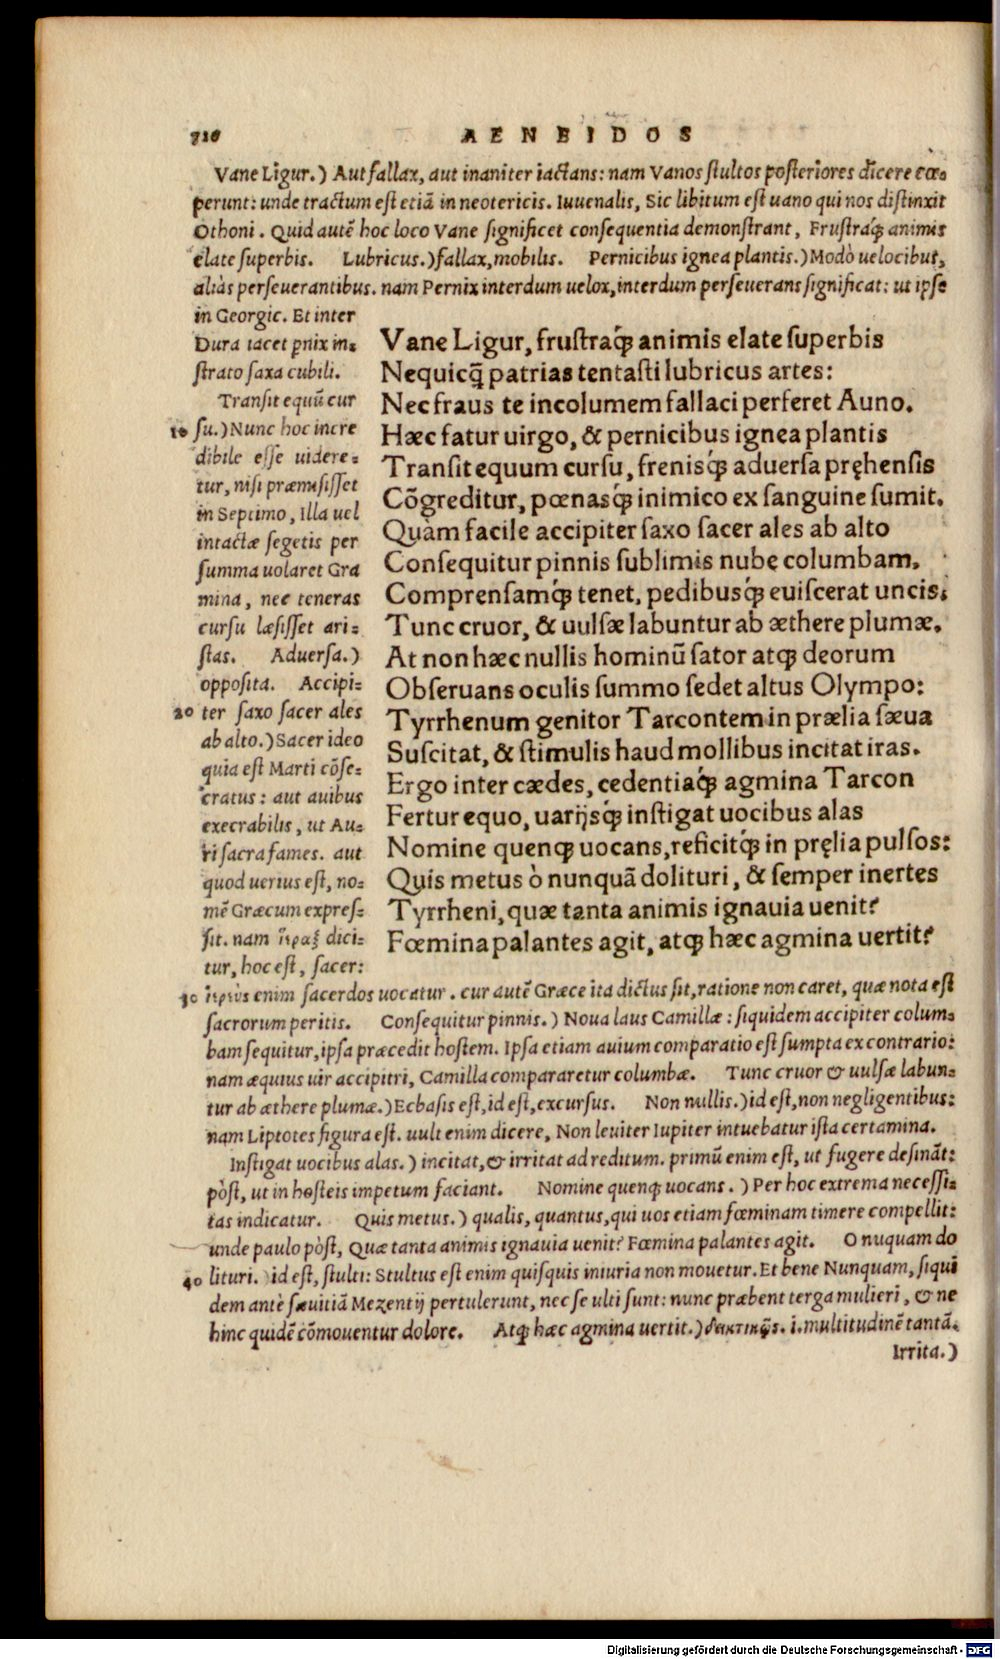 710 AENEIDOS
Vane Ligur.) Aut fallax, aut inaniter iactans: nam Vanos stultos posteriores dicere cœ-
perunt: unde tractum est etiã in neotericis. Iuuenalis, Sic libitum est uano qui nos distinxit
Othoni. Quid autẽ hoc loco Vane significet consequentia demonstrant, Frustraq́; animis
elate superbis. Lubricus.) fallax, mobilis. Pernicibus ignea plantis.) Modò uelocibus,
aliàs perseuerantibus. nam Pernix interdum uelox, interdum perseuerans significat: ut ipse
in Georgic. Et inter
Dura iacet pnix in-
strato saxa cubili.
Transit equũ cur
10 su.) Nunc hoc incre
dibile esse uidere-
tur, nisi præmisisset
in Septimo, Illa uel
intactæ segetis per
summa uolaret Gra
mina, nec teneras
cursu læsisset ari-
stas. Aduersa.)
opposita. Accipi-
20 ter saxo sacer ales
ab alto.) Sacer ideo
quia est Marti cõse-
cratus: aut auibus
execrabilis, ut Au-
ri sacra fames. aut
quod uerius est, no-
mẽ Græcum expres-
sit. nam ἱέραξ dici-
tur, hoc est, sacer:
Vane Ligur, frustraq́; animis elate superbis
Nequicq̃ patrias tentasti lubricus artes:
Nec fraus te incolumem fallaci perferet Auno.
Hæc fatur uirgo, & pernicibus ignea plantis
Transit equum cursu, frenisq́; aduersa pręhensis
Cõgreditur, pœnasq́; inimico ex sanguine sumit.
Quàm facile accipiter saxo sacer ales ab alto
Consequitur pinnis sublimis nube columbam,
Comprensamq́; tenet, pedibusq́; euiscerat uncis:
Tunc cruor, & uulsæ labuntur ab æthere plumæ.
At non hæc nullis hominũ sator atq; deorum
Obseruans oculis summo sedet altus Olympo:
Tyrrhenum genitor Tarcontem in prælia sæua
Suscitat, & stimulis haud mollibus incitat iras.
Ergo inter cædes, cedentiaq́; agmina Tarcon
Fertur equo, uarijsq́; instigat uocibus alas
Nomine quenq; uocans, reficitq́; in pręlia pulsos:
Quis metus ò nunquã dolituri, & semper inertes
Tyrrheni, quæ tanta animis ignauia uenit?
Fœmina palantes agit, atq; hæc agmina uertit?
30 ἱερεὺς enim sacerdos uocatur. cur autẽ Græce ita dictus sit, ratione non caret, quæ nota est
sacrorum peritis. Consequitur pinnis.) Noua laus Camillæ: siquidem accipiter colum-
bam sequitur, ipsa præcedit hostem. Ipsa etiam auium comparatio est sumpta ex contrario:
nam æquius uir accipitri, Camilla compararetur columbæ. Tunc cruor & uulsæ labun-
tur ab æthere plumæ.) Ecbasis est, id est, excursus. Non nullis.) id est, non negligentibus:
nam Liptotes figura est. uult enim dicere, Non leuiter Iupiter intuebatur ista certamina.
Instigat uocibus alas.) incitat, & irritat ad reditum. primũ enim est, ut fugere desinãt:
pòst, ut in hosteis impetum faciant. Nomine quenq; uocans.) Per hoc extrema necessi-
tas indicatur. Quis metus.) qualis, quantus, qui uos etiam fœminam timere compellit:
unde paulo pòst, Quæ tanta animis ignauia uenit? Fœmina palantes agit. O nuquam do
40 lituri.) id est, stulti: Stultus est enim quisquis iniuria non mouetur. Et bene Nunquam, siqui
dem antè sæuitiã Mezentij pertulerunt, nec se ulti sunt: nunc præbent terga mulieri, & ne
hinc quidẽ cõmouentur dolore. Atq; hæc agmina uertit.) δεικτικῶς. i. multitudinẽ tantã.
Irrita.)
Digitalisierung gefördert durch die Deutsche Forschungsgemeinschaft - DFG